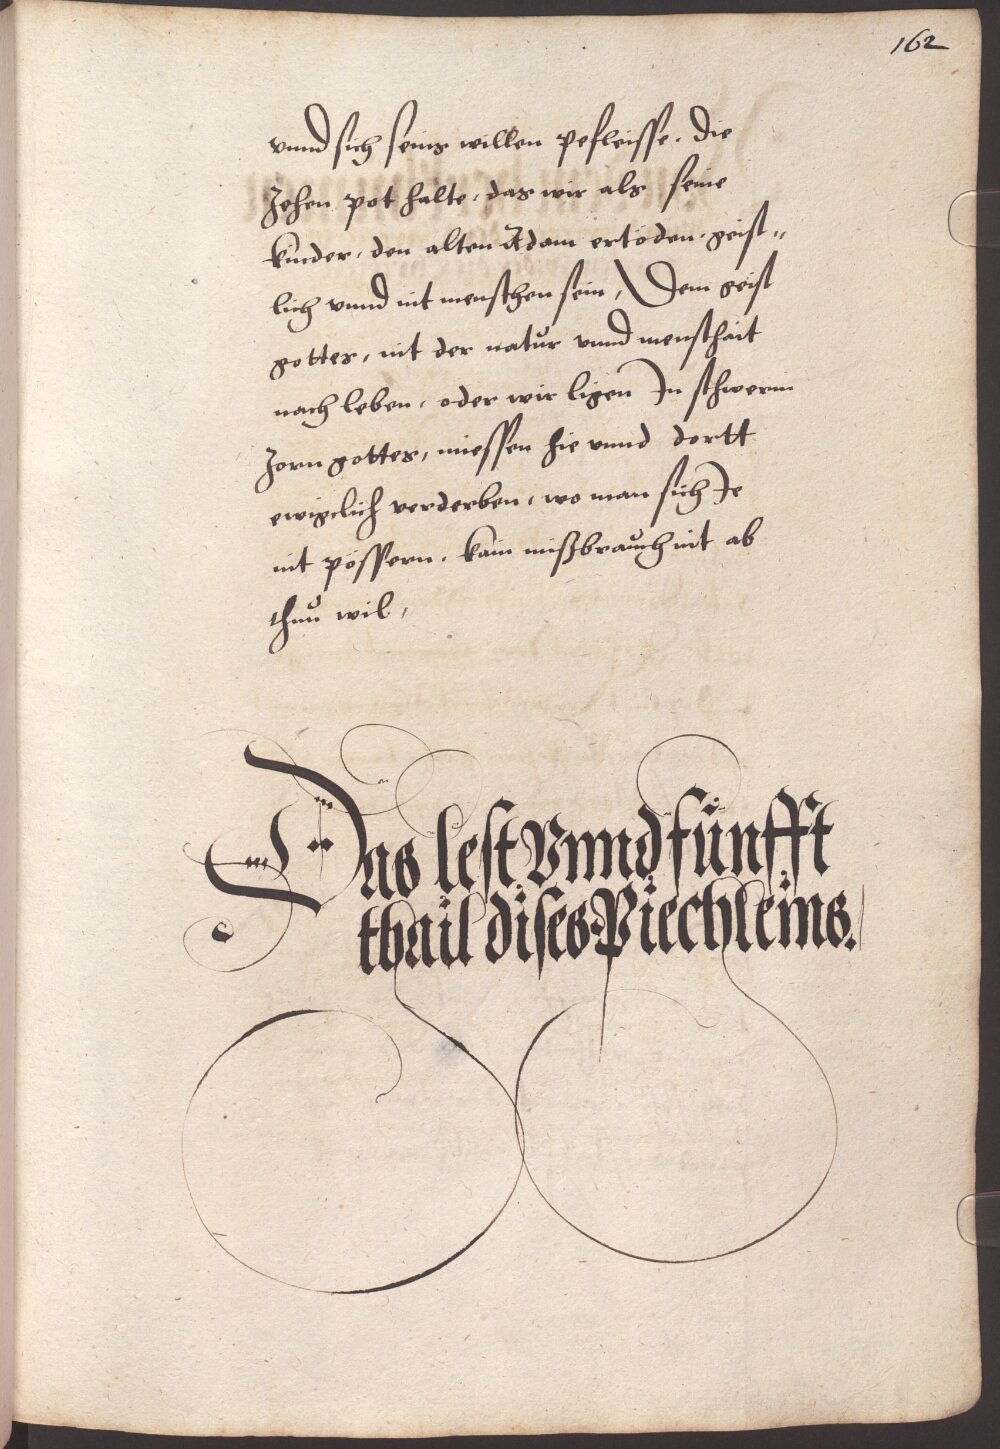 162
vnnd sich seins willen pefleisse. die
Zehen pot halte, das wir als seine
kinder, den alten Adam ertöden. geist„
lich vnnd nit menschen sein, Dem geist
gottes, nit der natur vnnd menschait
nach leben, oder wir ligen In schwerin
Zorn gottes, miessen hie vnnd dortt
ewigclich verderben, wo man sich Je
nit pössern, kain mißbrauch nit ab
thun wil,
Das lest Vnnd fünfft
thail dises Piechleins.